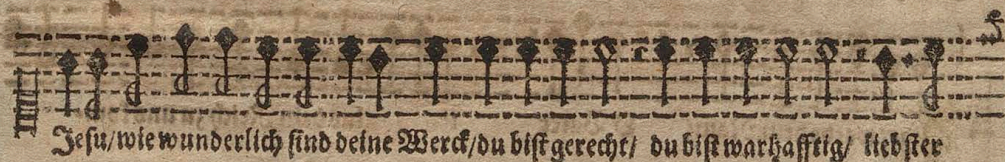 Jesu/wie wunderlich sind deine Werck/du bist gerecht/ du bist warhafftig/ liebster